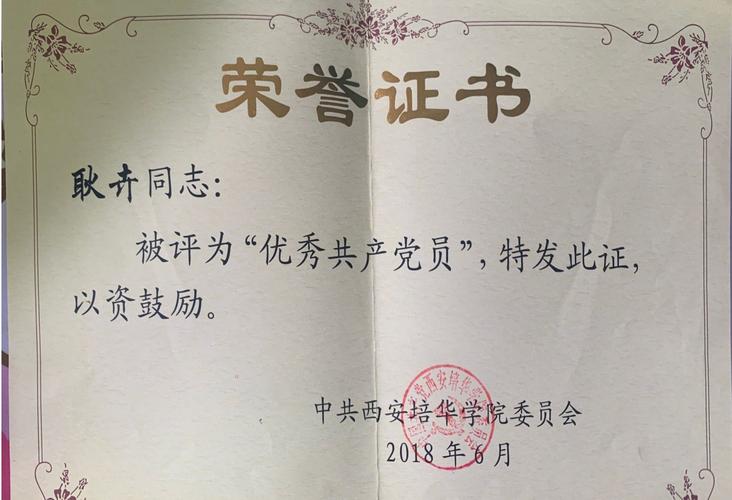 荣誉证书
耿卉同志：
被评为“优秀共产党员”，特发此证，
以资鼓励。
中共西安培华学院委员会
2018年6月